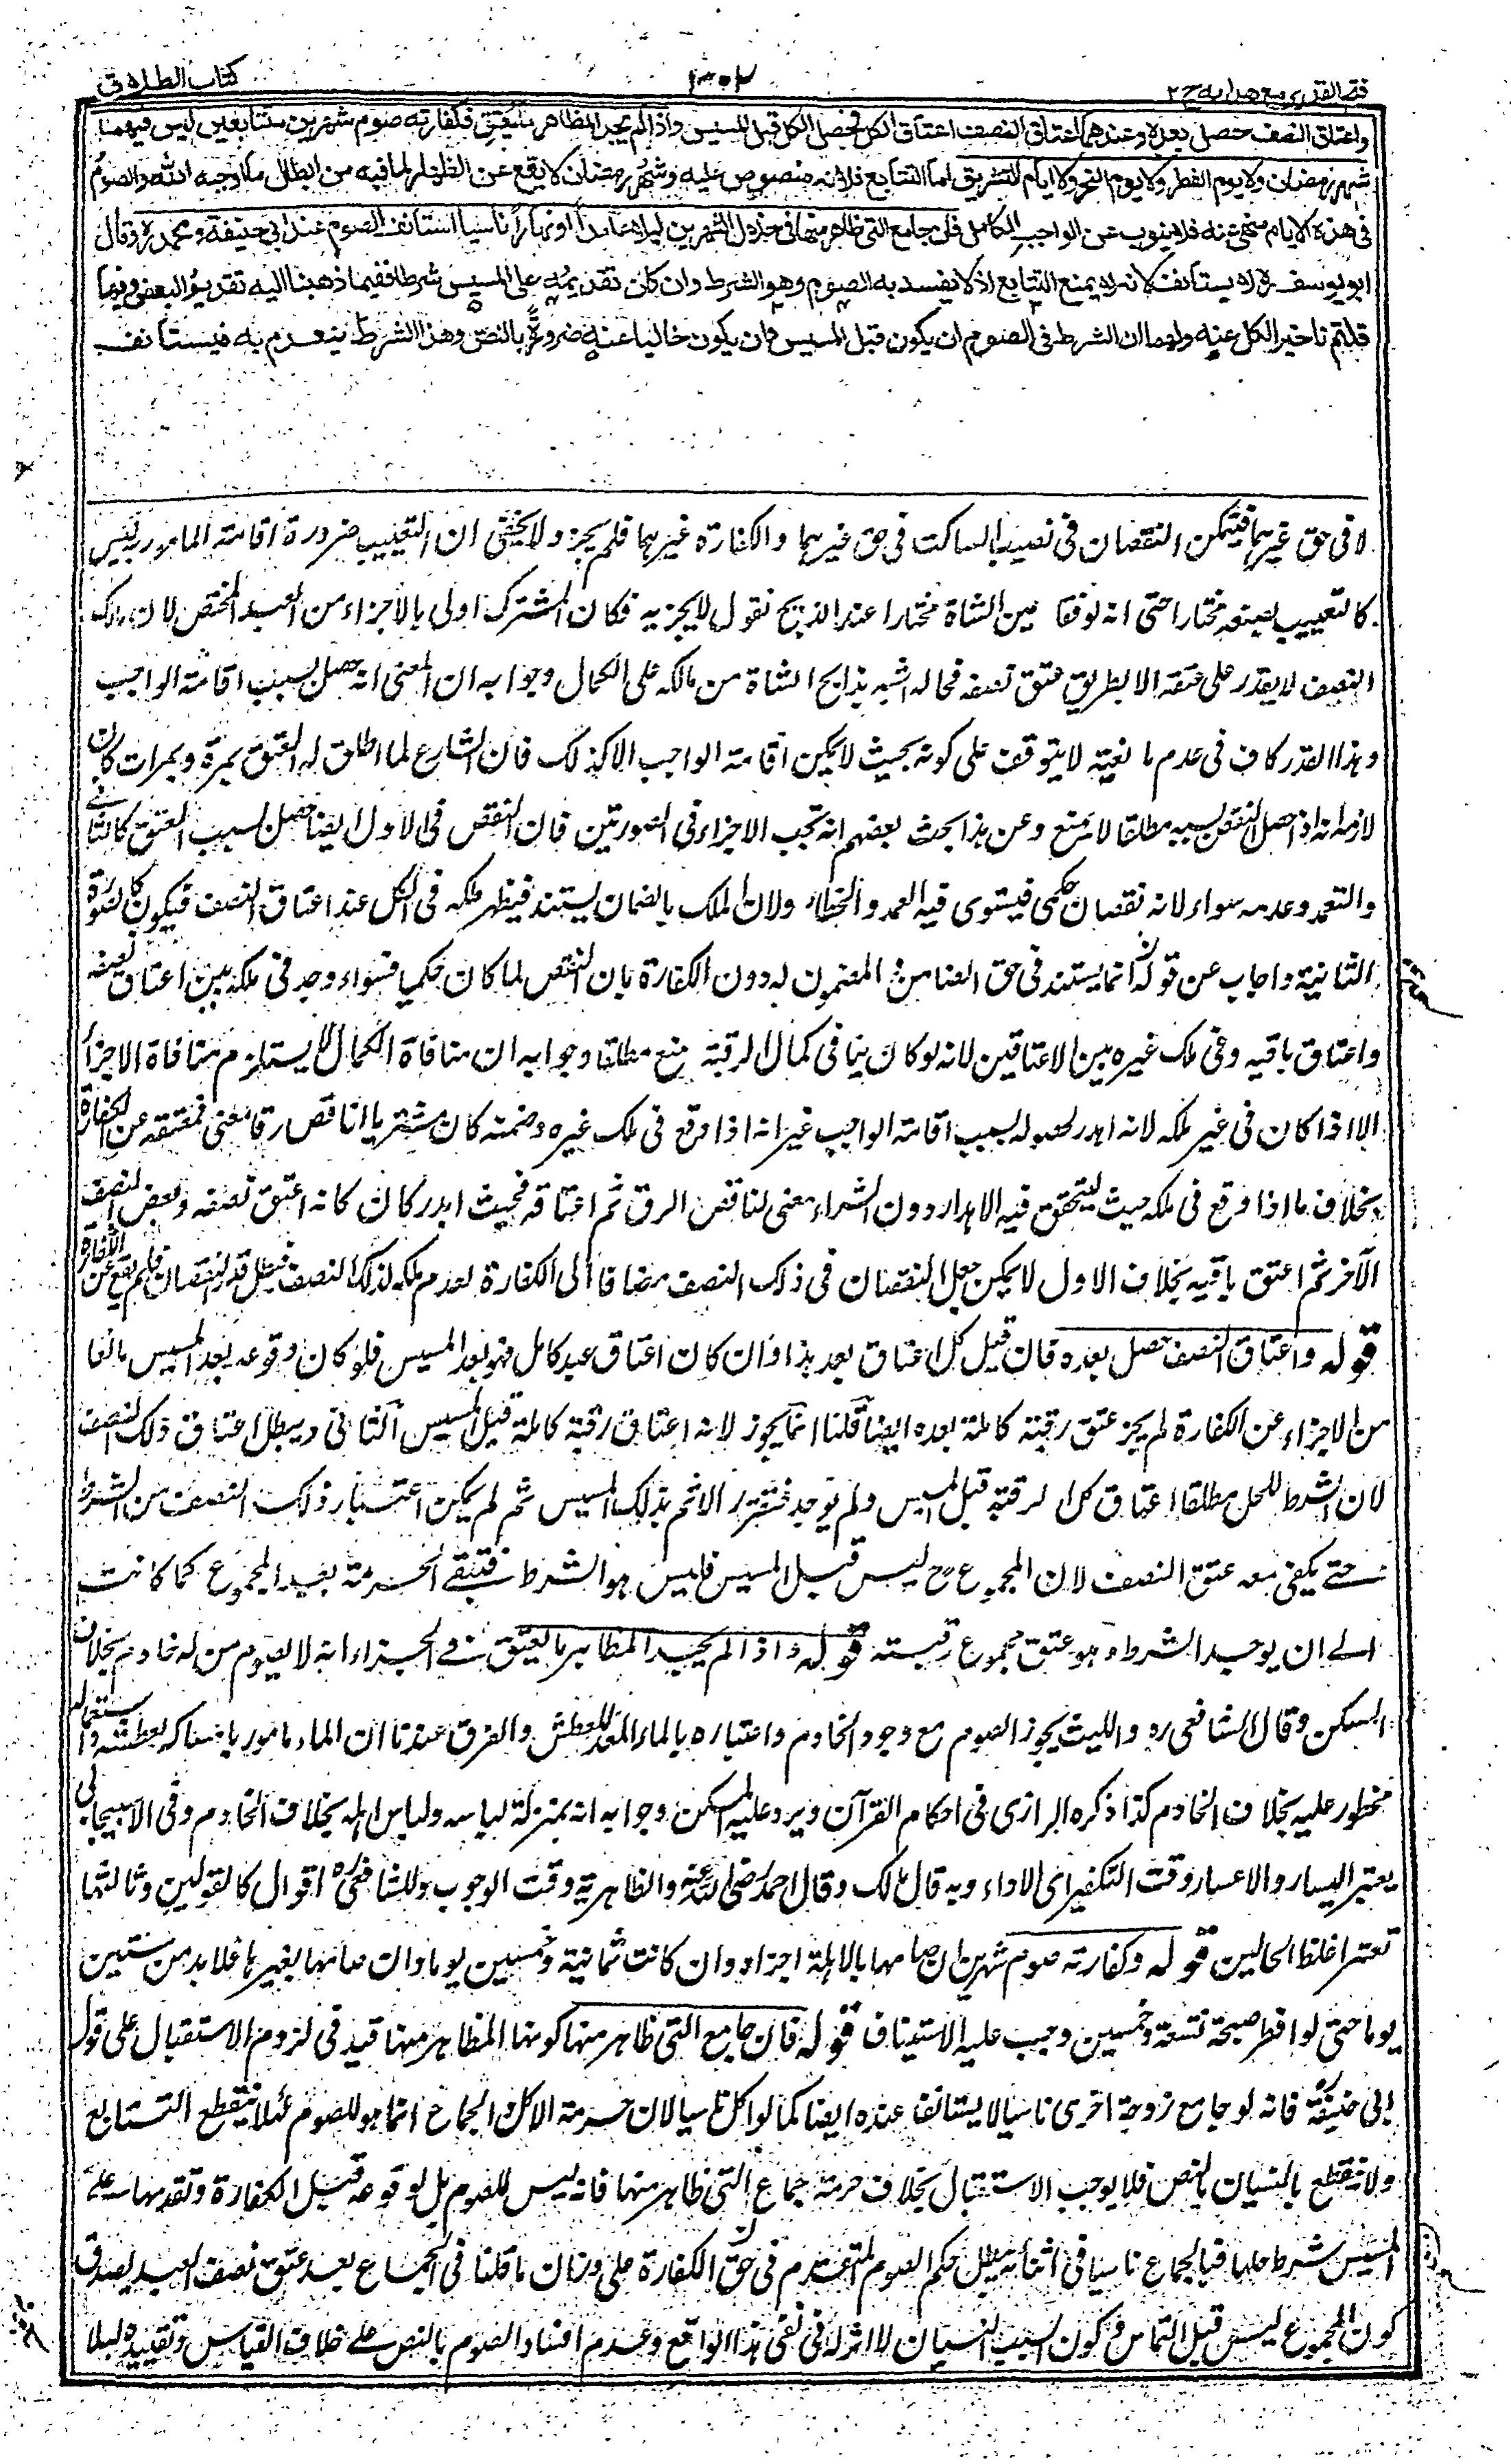 فتح القدير مع هدايه ج ٢
٣٠٢
كتاب الطلاق
واعتاق النصف حصل بعده وعندهما اعتاق النصف اعتاق الكل فحصل الكل قبل المسيس واذا لم يجد المظاهر ما يعتق فكفارته صوم شهرين متتابعين ليس فيهما
شهر رمضان ولا يوم الفطر ولا يوم النحر ولا ايام التشريق اما التتابع فلانه منصوص عليه وشهر رمضان لا يقع عن الظهار لما فيه من ابطال ما اوجبه الله والصوم
فى هذه الايام منهى عنه فلا ينوب عن الواجب الكامل فان جامع التى ظاهر منها فى خلال الشهرين ليلا عامدا او نهارا ناسيا استانف الصوم عند ابى حنيفة ومحمد ره وقال
ابو يوسف ره لا يستانف لانه لا يمنع التتابع اذ لا يفسد به الصوم وهو الشرط وان كان تقديمه على المسيس شرطا ففيما ذهبنا اليه تقديم البعض وفيما
قلتم تاخير الكل عنه ولهما ان الشرط فى الصوم ان يكون قبل المسيس وان يكون خاليا عنه ضرورة بالنص وهذا الشرط ينعدم به فيستانف
لا فى حق غيرهما فيتمكن النقصان فى نصيب الساكت فى حق غيرهما والكفارة غيرهما فلم يجز ولا يخفى ان التعييب ضرورة اقامة المامور ليس
كالتعييب بصنعه مختارا حتى انه لو فقأ عين الشاة مختارا عند الذبح نقول لا يجزيه فكان المشترك اولى بالاجزاء من العبد المختص لان مالك
النصف لا يقدر على عتقه الا بطريق عتق نصفه فحاله اشبه بذابح الشاة من مالكه على الكمال وجوابه ان المعنى انه حصل بسبب اقامة الواجب
وهذا القدر كاف فى عدم مانعيته لا يتوقف على كونه بحيث لا يمكن اقامة الواجب الا كذلك فان الشارع لما اطلق له العتق بمرة وبمرات كان
لازمه انه اذا حصل النقص بسببه مطلقا لا يمنع وعن هذا بحث بعضهم انه تجب الاجزاء فى الصورتين فان النقص فى الاول ايضا حصل بسبب العتق كالثانى
والتعمد وعدمه سواء لانه نقصان حكمى فيستوى فيه العمد والخطاء ولان الملك بالضمان يستند فيظهر ملكه فى الكل عند اعتاق النصف فيكون كالصورة
الثانية واجاب عن قولهم انما يستند فى حق الضامن والمضمون له دون الكفارة بان النقص لما كان حكميا فسواء وجد فى ملكه بين اعتاق نصفه
واعتاق باقيه وفى ملك غيره بين الاعتاقين لانه لو كان ينافى كمال الرقبة منع مطلقا وجوابه ان منافاة الكمال لا يستلزم منافاة الاجزاء
الا اذا كان فى غير ملكه لانه اهدر لحصوله بسبب اقامة الواجب غير انه اذا وقع فى ملك غيره وضمنه كان مشتريا ناقص رقا معنى فمعتقه عن الكفارة
بخلاف ما اذا وقع فى ملكه حيث يتحقق فيه الاهدار دون الشراء معنى لناقص الرق ثم اعتاقه فحيث اهدر كان كانه اعتق نصفه وبعض النصف
الآخر ثم اعتق باقيه بخلاف الاول لا يمكن جعل النقصان فى ذلك النصف مضافا الى الكفارة لعدم ملكه لذلك النصف فبطل قدر النقصان فلم يقع عن الكفارة
قوله واعتاق النصف حصل بعده فان قيل كل اعتاق بعد هذا وان كان اعتاق عبد كامل فهو بعد المسيس فلو كان وقوعه بعد المسيس مانعا
من الاجزاء عن الكفارة لم يجز عتق رقبة كاملة بعده ايضا قلنا انما يجوز لانه اعتاق رقبة كاملة قبل المسيس الثانى ويبطل اعتاق ذلك النصف
لان الشرط للحل مطلقا اعتاق كل الرقبة قبل المسيس ولم يوجد فتقرر الاثم بذلك المسيس ثم لم يكن اعتبار ذلك النصف من الشرط
حتى يكفى معه عتق النصف لان المجموع ح ليس قبل المسيس فليس هو الشرط فتبقى الحرمة بعد المجموع كما كانت
الى ان يوجد الشرط وهو عتق مجموع رقبته قوله واذا لم يجد المظاهر ما يعتق فى الجزاء انه لا يصوم من له خادم بخلاف
المسكن وقال الشافعى ره والليث يجوز الصوم مع وجود الخادم واعتباره بالماء المعد للعطش والفرق عندنا ان الماء مامور بامساكه لعطشه واستعماله
محظور عليه بخلاف الخادم كذا ذكره الرازى فى احكام القرآن ويرد عليه المسكن وجوابه انه بمنزلة لباسه ولباس اهله بخلاف الخادم وفى الاسبيجابى
يعتبر اليسار والاعسار وقت التكفير اى الاداء وبه قال مالك وقال احمد رضى الله عنه والظاهرية وقت الوجوب وللشافعى ره اقوال كالقولين وثالثها
تعتبر اغلظ الحالين قوله وكفارته صوم شهرين ان صامهما بالاهلة اجزاه وان كانت ثمانية وخمسين يوما وان صامها بغيرها فلا بد من ستين
يوما حتى لو افطر صبيحة تسعة وخمسين وجب عليه الاستيناف قوله فان جامع التى ظاهر منها كونها المظاهر منها قيد فى لزوم الاستقبال على قول
ابى حنيفة فانه لو جامع زوجة اخرى ناسيا لا يستانف عنده ايضا كما لو اكل ناسيا لان حرمة الاكل والجماع انما هو للصوم لئلا ينقطع التتابع
ولا ينقطع بالنسيان بالنص فلا يوجب الاستقبال بخلاف حرمة جماع التى ظاهر منها فانه ليس للصوم بل لوقوعه قبل الكفارة وتقدمها على
المسيس شرط حلها فبالجماع ناسيا فى اثنائه يبطل حكم الصوم المتقدم فى حق الكفارة على وزان ما قلنا فى الجماع بعد عتق نصف العبد يصدق
كون المجموع ليس قبل التماس وكون السبب النسيان لا اثر له فى نفى هذا الواقع وعدم افساد الصوم بالنص على خلاف القياس وتقييده ليلا